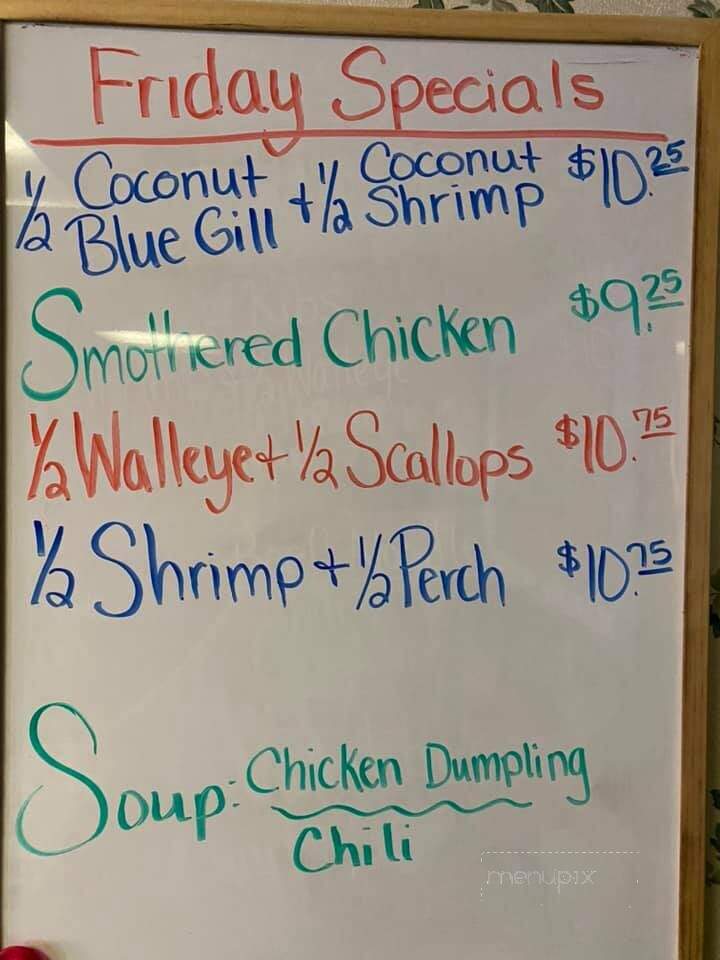 Friday Specials
½ Coconut Blue Gill + ½ Coconut Shrimp $10.25
Smothered Chicken $9.25
½ Walleye + ½ Scallops $10.75
½ Shrimp + ½ Perch $10.75
Soup: Chicken Dumpling
Chili
menupix